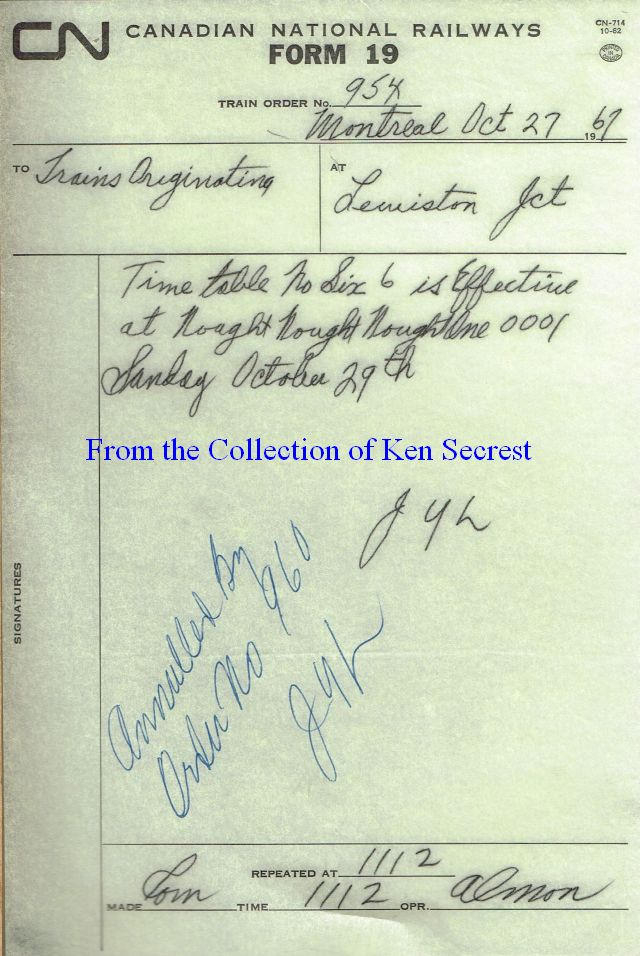 CN CANADIAN NATIONAL RAILWAYS
CN-714
10-62
FORM 19
TRAIN ORDER No. 954
Montreal Oct 27 1967
TO Trains Originating
AT Lewiston Jct
Time table No Six 6 is Effective
at Nought Nought Nought One 0001
Sunday October 29th
From the Collection of Ken Secrest
J Y L
SIGNATURES
Annulled By
Order No 960
J Y L
REPEATED AT 1112
MADE Com TIME 1112 OPR. Almon